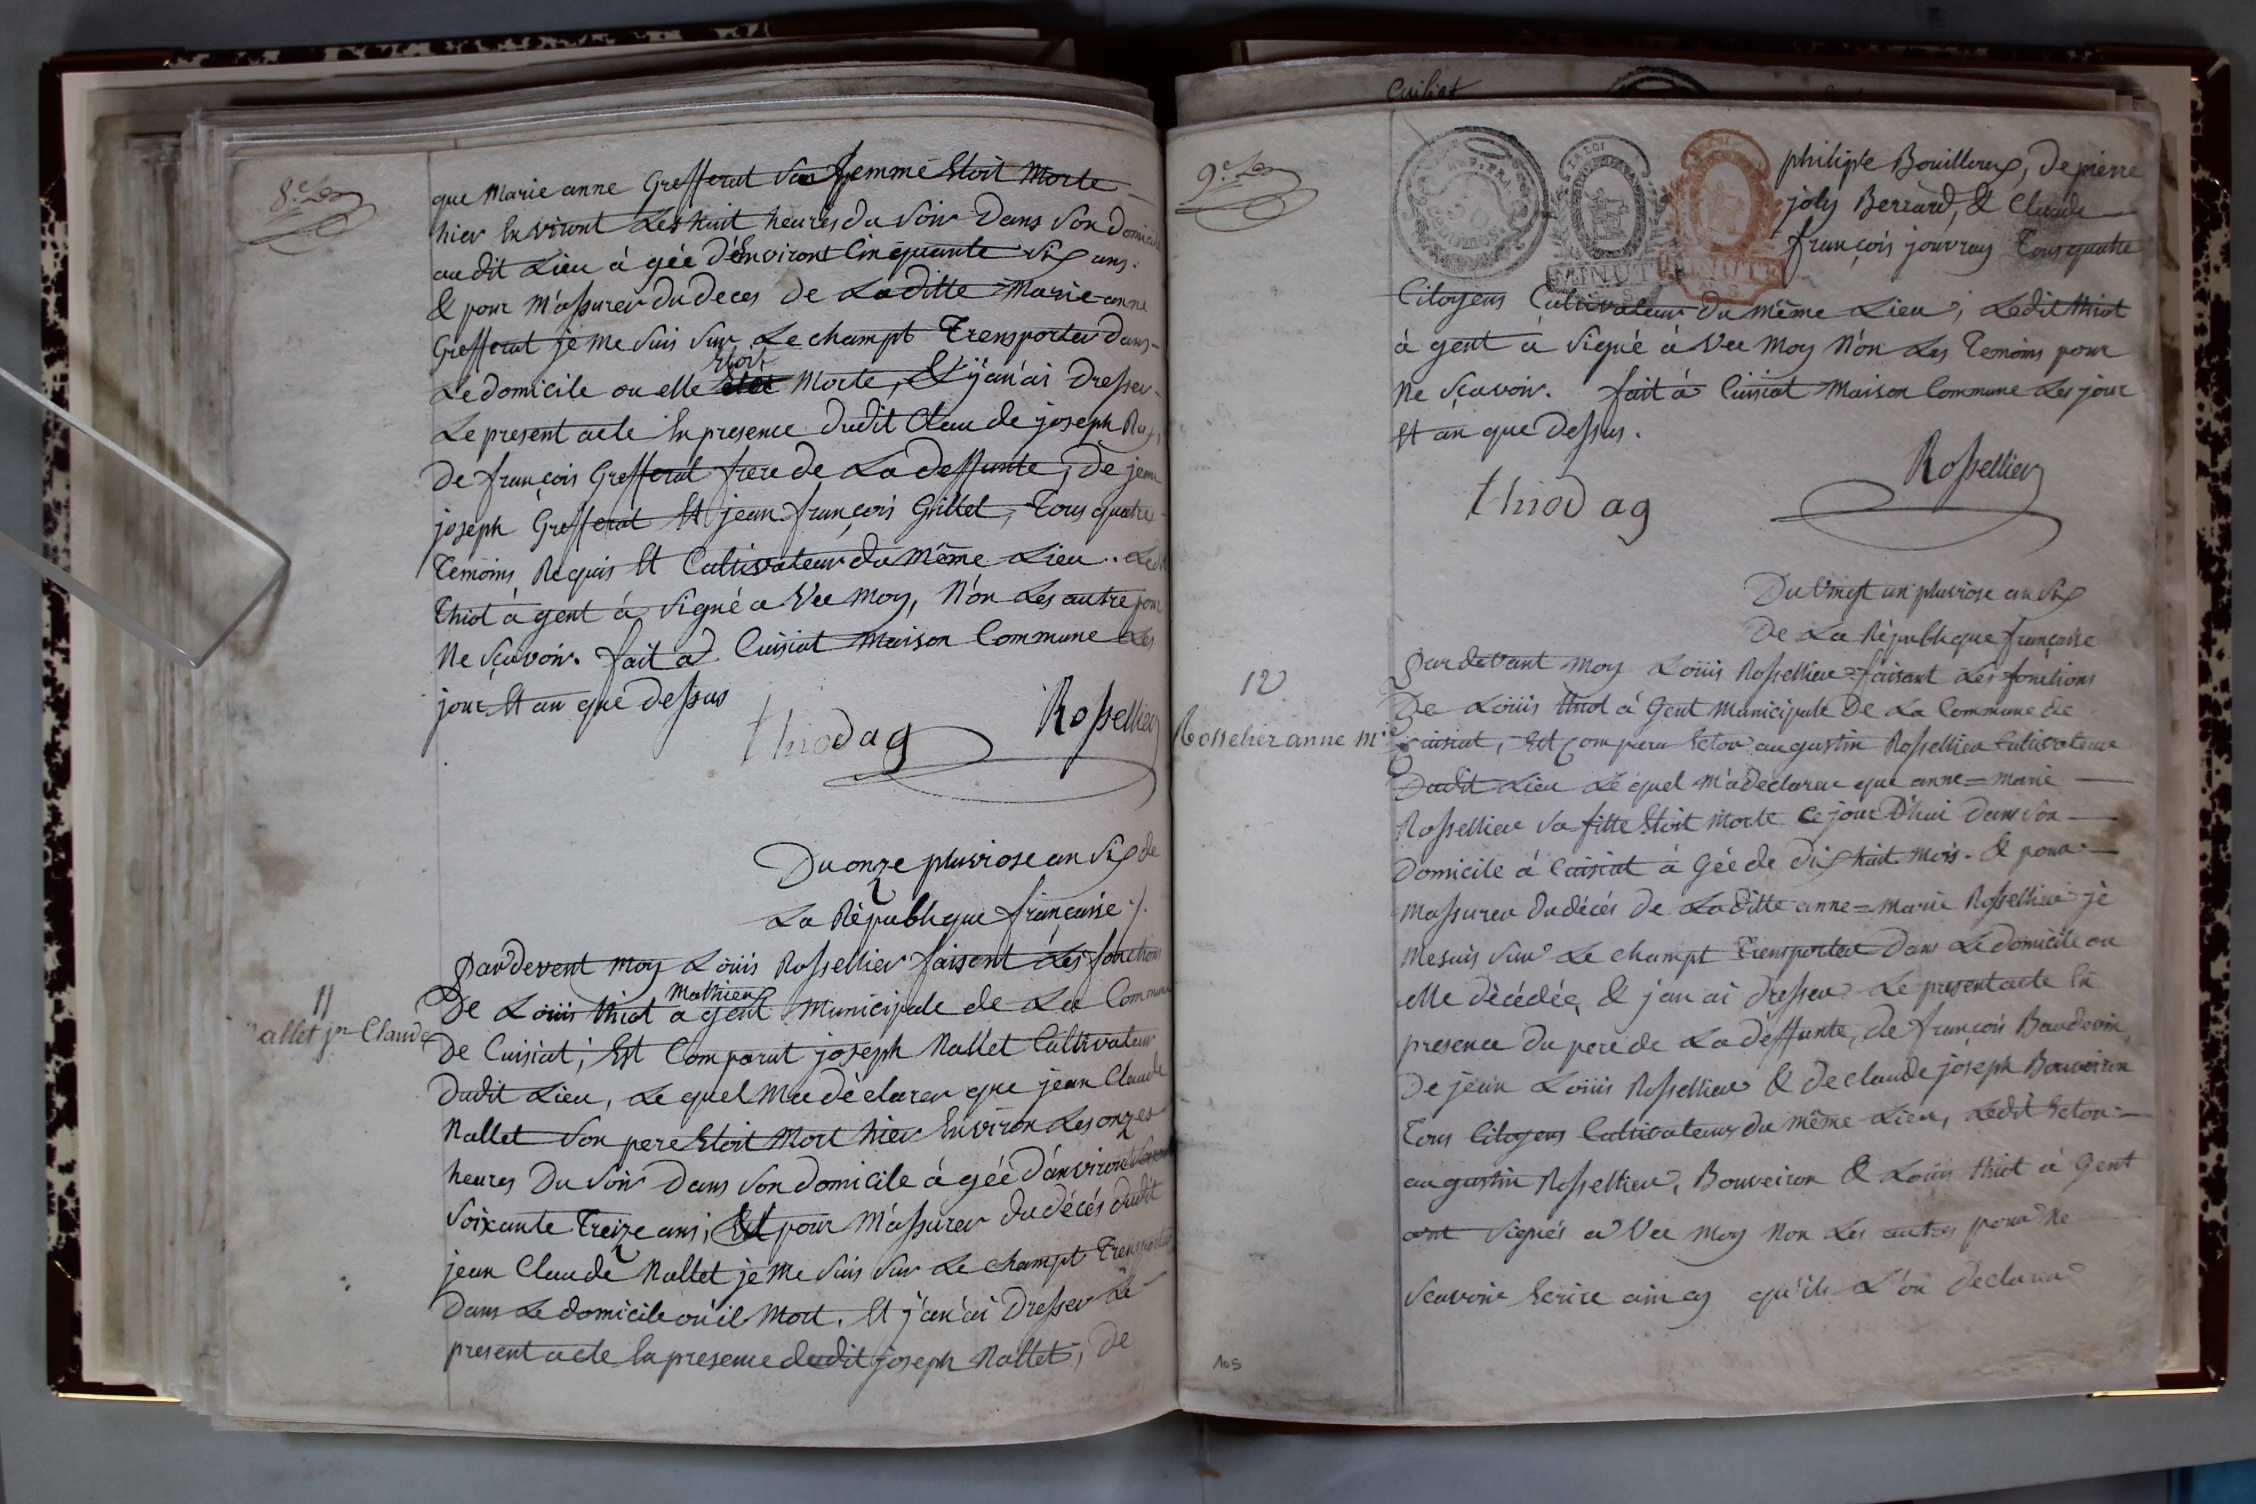 8e
que Marie anne Grefferat Sa femme Etoit Morte
hier Environt Les huit heures du Soir Dans Son domicile
audit Lieu à gée d'Environt Cinquante Six ans.
& pour M'assurer du deces de Laditte Marie anne
Grefferat je me Suis Sur Le champt Trensporter dans
Le domicile ou elle Etoit Morte, & j'an'ai Dresser
Le present acte En presence dudit Claude joseph
De françois Grefferat frere de La deffunte, de jean
joseph Grefferat Et jean françois Gillet, Tous quatre
Temoins Requis Et Cultivateur du Même Lieu. Ledit
Thiot à gent á Signé a Vec Moy, N'on Les autre pour
Ne Sçavoir. fait a Cuisiat Maison Commune Les
jour Et an que dessus
thiod ag
Rossellier
Du onze pluviose an Six de
La République françaisse ./.
11
allet jn Claude
Pardevent Moy Loüis Rossellier faisent Les fonctions
De Loüis thiot Mathieu agent Municipale de La Commune
De Cuisiat; Est Comparut joseph Nallet Cultivateur
Dudit Lieu, Le quel Ma déclarer que jean Claude
Nallet Son pere Etoit Mort hier Environ Les onzes
heures Du Soir Dans Son domicile à gée d'anviron
Soixante Treize ans; Et pour M'assurer du décés dudit
jean Claude Nallet je Me Suis Sur Le champt Trensporter
Dans Le domicile oú il Mort. Et j'an'ai Dresser Le
present acte En presence dudit joseph Nallet, De
9e
philipe Bouilloux, De pierre
joly Berrard, & Claude
françois jouvray Tous quatre
Citoyens Cultivateur Du Même Lieu; Ledit thiot
à gent a Signé a Vec Moy N'on Les Temoins pour
Ne Sçavoir. fait á Cuisiat Maison Commune Les jour
Et an que Dessus.
thiod ag
Rossellier
Du Vingt un pluviose an Six
De La République françoise
12
Rosselier anne mie
Pardevant Moy Loüis Rossellier faisant Les fonctions
De Loüis thiot á Gent Municipale De La Commune de
Cuisiat, Est Comparu hetor augustin Rossellier Cultivateur
Dudit Lieu Le quel M'a declarer que anne=marie
Rossellier Sa fille Etoit Morte Ce jour D'hui Dans Son
Domicile á Cuisiat á Gée de Dix huit Mois. & pour
Massurer du décés De Laditte anne=marie Rossellier je
Me Suis Sur Le champt Trensporter Dans Le domicile ou
elle décédée, & j'an ai Dresser Le present acte En
presence Du pere de La deffunte, de françois Baudevin,
De jean Loüis Rossellier & De claude joseph Bouveiron
Tous Citoyens Cultivateurs du Même Lieu, Ledit hetor
augustin Rossellier, Bouveiron & Loüis thiot á Gent
ont Signés a Vec Moy Non Les autres pour Ne
Scavoir Ecrire ain cy qu'ils L'on Declarer
105
MINUTE
LA LOI